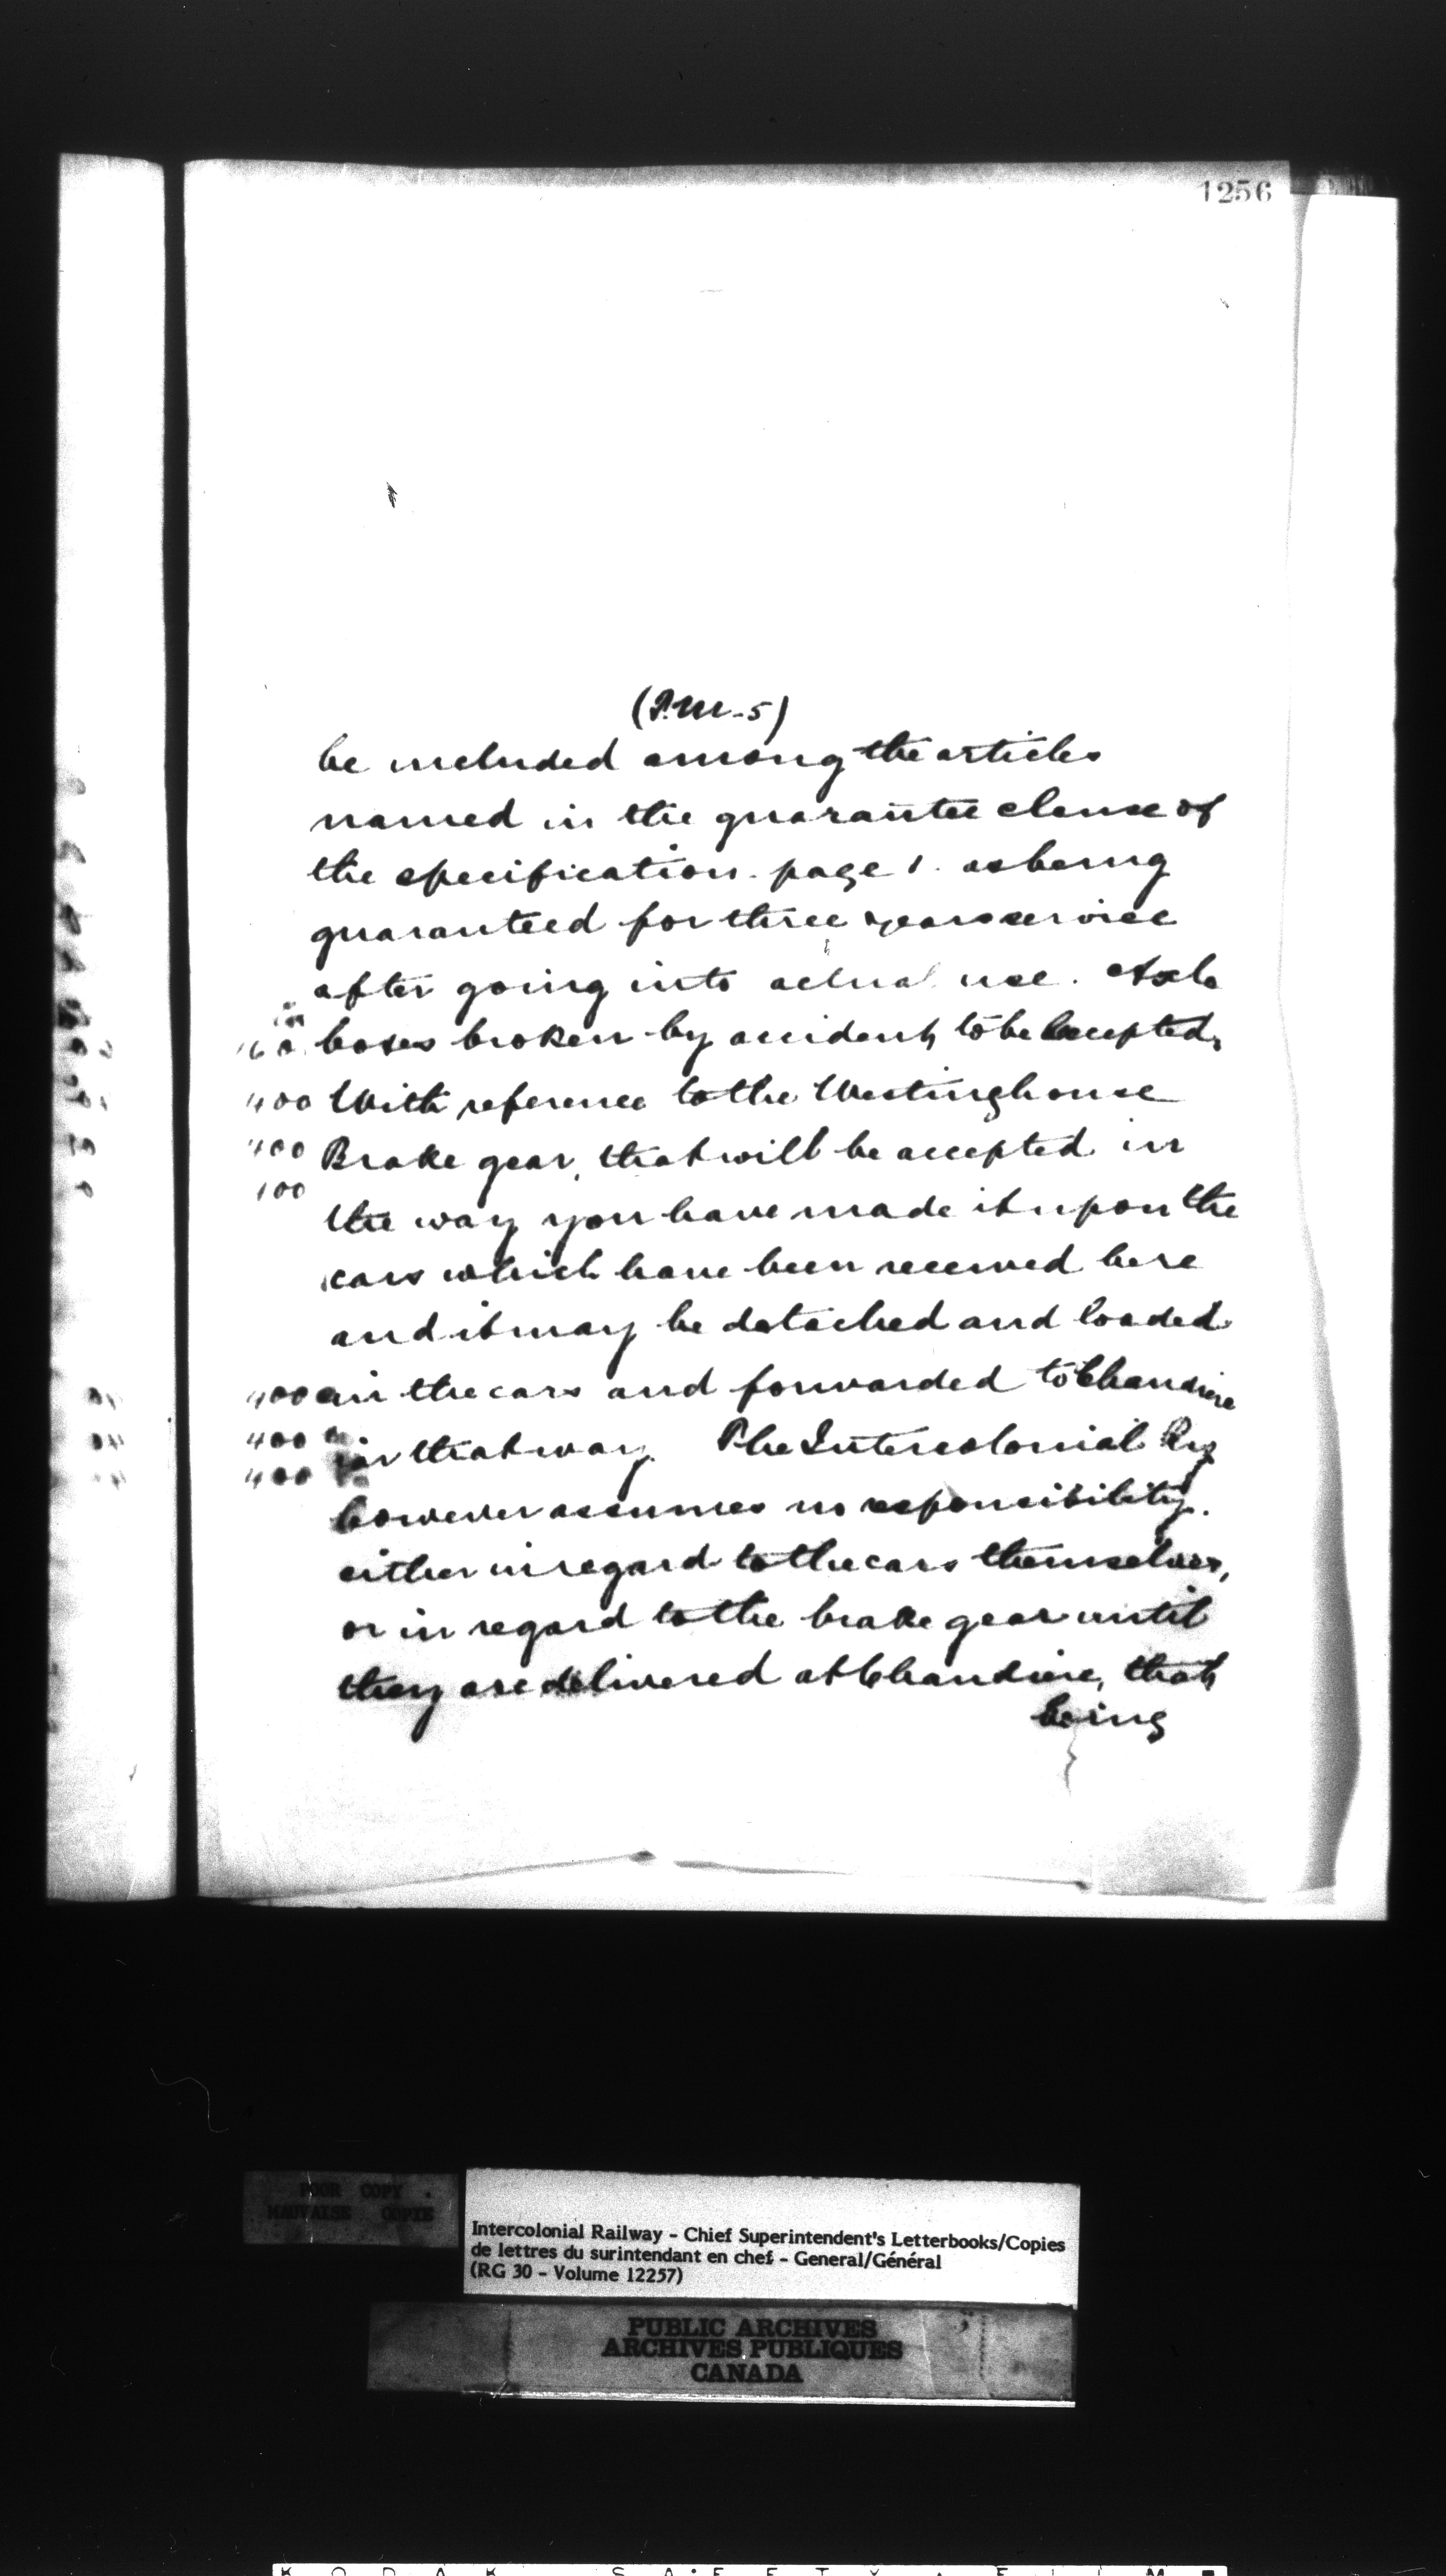 1256
(P.M-5)
be included among the articles
named in the guarantee clause of
the specification. page 1. as being
guaranteed for three years service
after going into actual use. Axle
boxes broken by accident, to be excepted,
400 With reference to the Westinghouse
400 Brake gear, that will be accepted in
100
the way you have made it upon the
cars which have been received here
and it may be detached and loaded
400 in the cars and forwarded to Chaudiere
400 in that way. The Intercolonial Ry
400
however assumes no responsibility.
either in regard to the cars themselves,
or in regard to the brake gear until
they are delivered at Chaudiere, that
being
POOR COPY
MAUVAISE COPIE
Intercolonial Railway - Chief Superintendent's Letterbooks/Copies
de lettres du surintendant en chef - General/Général
(RG 30 - Volume 12257)
PUBLIC ARCHIVES
ARCHIVES PUBLIQUES
CANADA
KODAK SAFETY FILM